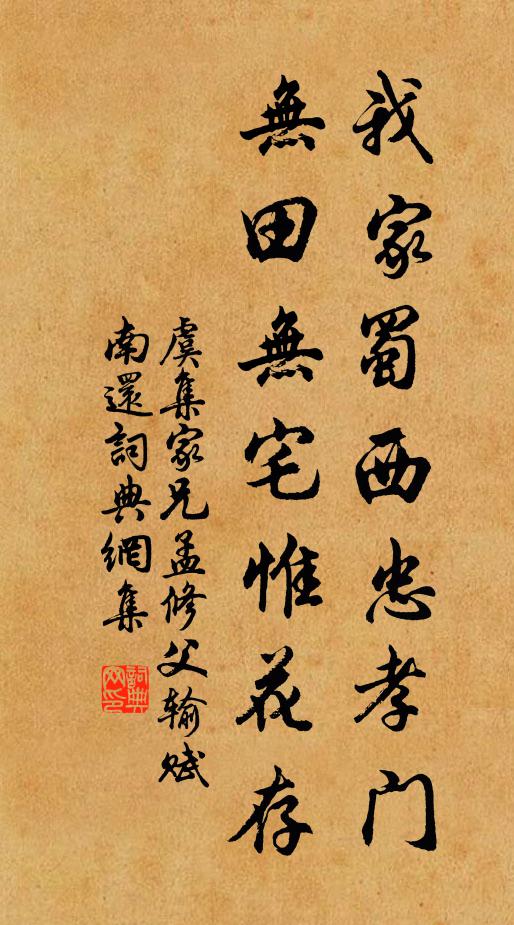 我家蜀西忠孝门
無田無宅惟花存
虞集家兄孟修父輸赋
南還詞典網集
詞典网印